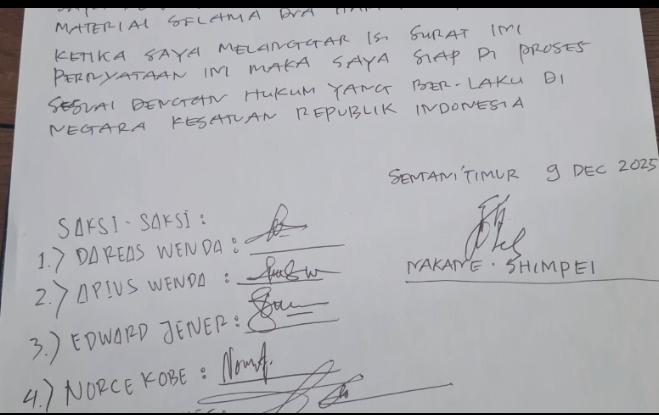 MATERIAL SELAMA DUA HARI
KETIKA SAYA MELANGGAR ISI SURAT INI
PERNYATAAN INI MAKA SAYA SIAP DI PROSES
SESUAI DENGAN HUKUM YANG BER-LAKU DI
NEGARA KESATUAN REPUBLIK INDONESIA
SENTANI TIMUR 9 DEC 2025
SAKSI-SAKSI :
1.) DAREAS WENDA :
NAKANE . SHIMPEI
2.) APIUS WENDA :
3.) EDWARD JENER :
4.) NORCE KOBE :